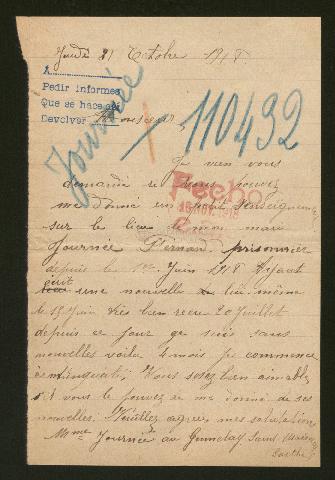 Jeudi 31 Octobre 1918.
A
Pedir informes
Que se hace
Devolver
Monsieur
Journée
110432
Je vien vous
demandé si vous pouvez
me donné un petit renseignement
sur le lieu de mon mari
Journée Fernand, prisonnier
Fecho
16 NOV. 1918
depuis le 1er Juin 1918 Ayant
écrit une nouvelle lui même
le 15 Juin très bien recu 20 Juillet
depuis ce jour je suis sans
nouvelles voila 4 mois je commence
a m'inquiété; Vous serez bien aimable
si vous le pouvez de me donné de ses
nouvelles. Veuillez agréer mes salutations
Mme Journée au Saint
Sarthe